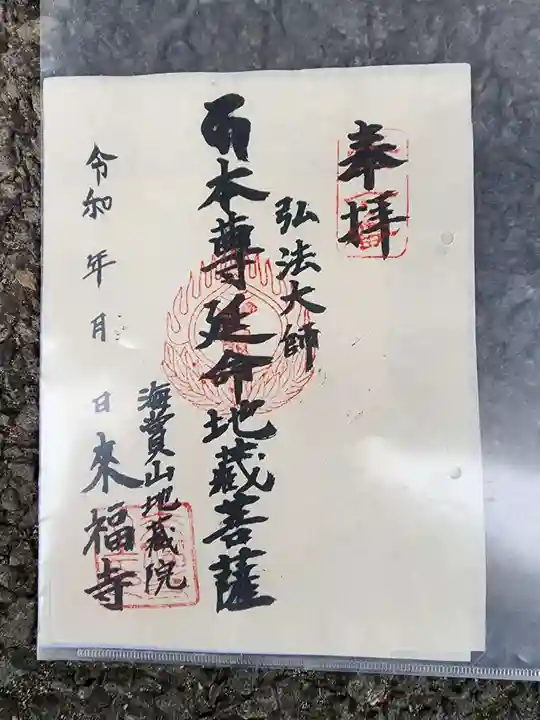 奉拝
弘法大師
本尊延命地蔵菩薩
海賞山地蔵院
令和 年 月 日 來福寺